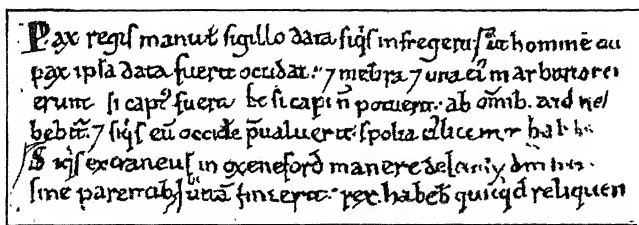 Pax regis manu ł sigillo data siq̇s infregerit ita ut hominē cui
pax ipsa data fuerit occidat. ⁊ mēbra ⁊ uita ei in arbitrio
erunt si capt⁹ fuerit. si capi n̄ potuerit. ab om̄ib.
bebit̄. ⁊ siq̇s eū occidere p̄ualuerit. spolia licent habeb
Siq̇s extraneus in oxeneford manere
sine parentib uitā finierit. rex habeb quicq̇d reliquerit